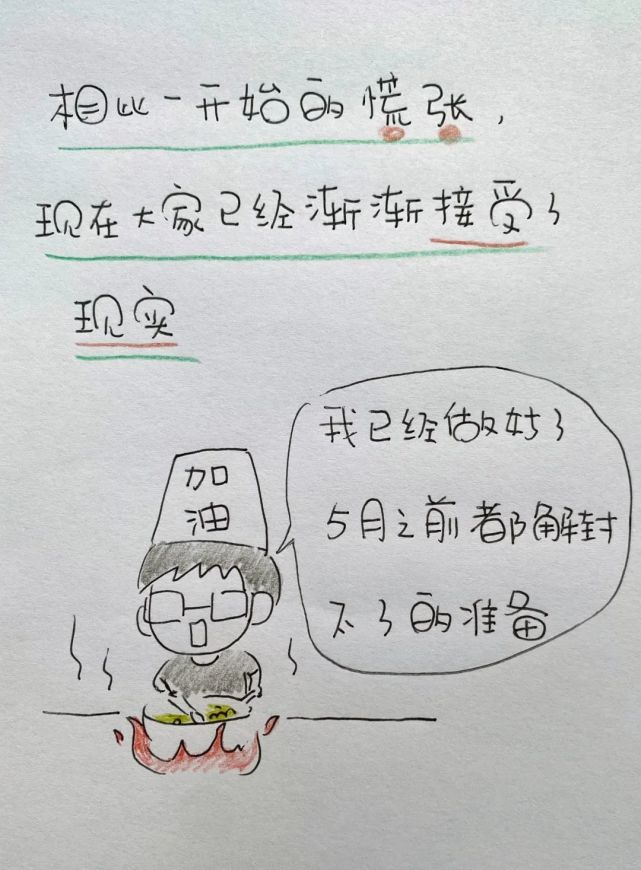 相比一开始的慌张，
现在大家已经渐渐接受了
现实
我已经做好了
5月之前都解封
不了的准备
加
油